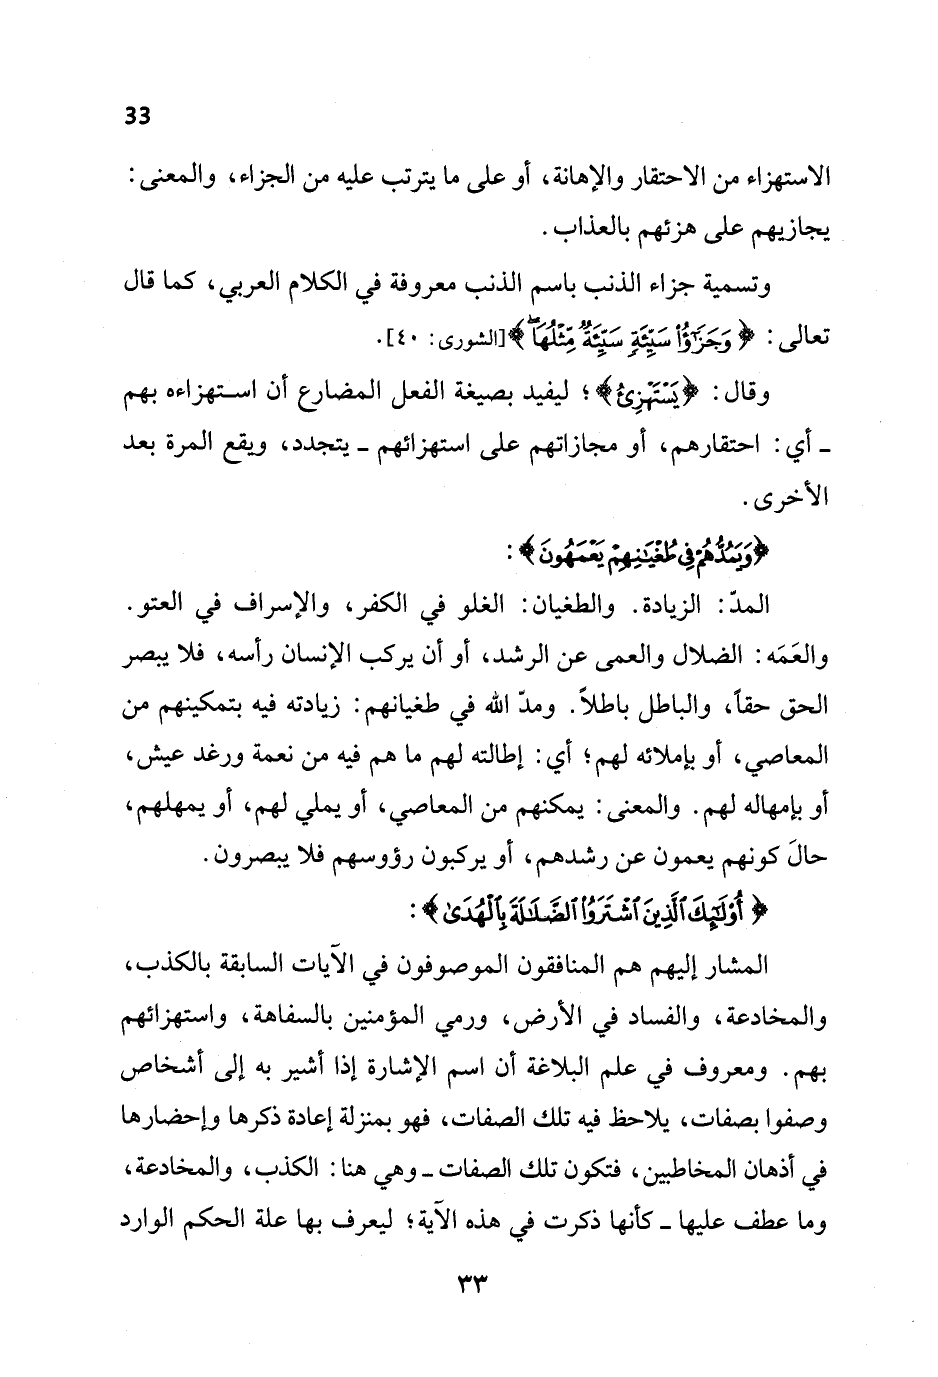 33
الاستهزاء من الاحتقار والإهانة، أو على ما يترتب عليه من الجزاء، والمعنى:
يجازيهم على هزئهم بالعذاب.
وتسمية جزاء الذنب باسم الذنب معروفة في الكلام العربي، كما قال
تعالى: ﴿وَجَزَٰٓؤُا۟ سَيِّئَةٍ سَيِّئَةٌ مِّثْلُهَا ۖ﴾ [الشورى: ٤٠].
وقال: ﴿يَسْتَهْزِئُ﴾؛ ليفيد بصيغة الفعل المضارع أن استهزاءه بهم
ـ أي: احتقارهم، أو مجازاتهم على استهزائهم ـ يتجدد، ويقع المرة بعد
الأخرى.
﴿وَيَمُدُّهُمْ فِي طُغْيَٰنِهِمْ يَعْمَهُونَ﴾:
المدّ: الزيادة. والطغيان: الغلو في الكفر، والإسراف في العتو.
والعَمَه: الضلال والعمى عن الرشد، أو أن يركب الإنسان رأسه، فلا يبصر
الحق حقاً، والباطل باطلاً. ومدّ الله في طغيانهم: زيادته فيه بتمكينهم من
المعاصي، أو بإملائه لهم؛ أي: إطالته لهم ما هم فيه من نعمة ورغد عيش،
أو بإمهاله لهم. والمعنى: يمكنهم من المعاصي، أو يملي لهم، أو يمهلهم،
حالَ كونهم يعمون عن رشدهم، أو يركبون رؤوسهم فلا يبصرون.
﴿أُو۟لَٰٓئِكَ ٱلَّذِينَ ٱشْتَرَوُا۟ ٱلضَّلَٰلَةَ بِٱلْهُدَىٰ﴾:
المشار إليهم هم المنافقون الموصوفون في الآيات السابقة بالكذب،
والمخادعة، والفساد في الأرض، ورمي المؤمنين بالسفاهة، واستهزائهم
بهم. ومعروف في علم البلاغة أن اسم الإشارة إذا أشير به إلى أشخاص
وصفوا بصفات، يلاحظ فيه تلك الصفات، فهو بمنزلة إعادة ذكرها وإحضارها
في أذهان المخاطبين، فتكون تلك الصفات ـ وهي هنا: الكذب، والمخادعة،
وما عطف عليها ـ كأنها ذكرت في هذه الآية؛ ليعرف بها علة الحكم الوارد
٣٣